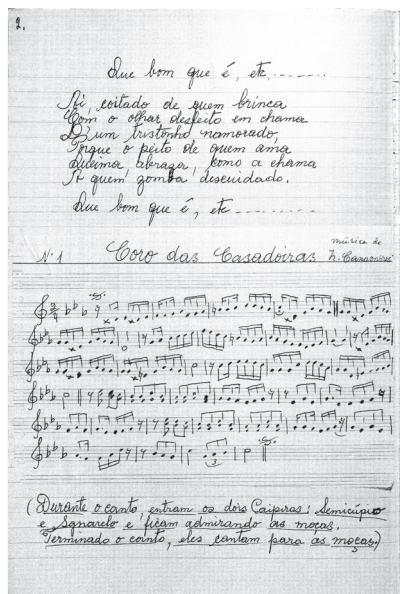 2.
Que bom que é, etc.........
Ai, coitado de quem brinca
Com o olhar desfeito em chama
D'um tristonho namorado,
Porque o peito de quem ama
Queima abraza, como a chama
A quem gomba descuidado.
Que bom que é, etc.............
Nº 1 Coro das Casadoiras música de
(Durante o canto, entram os dois Caipiras: Semicúpio
e Sganarelo e ficam admirando as moças.
Terminado o canto, eles cantam para as moças.)